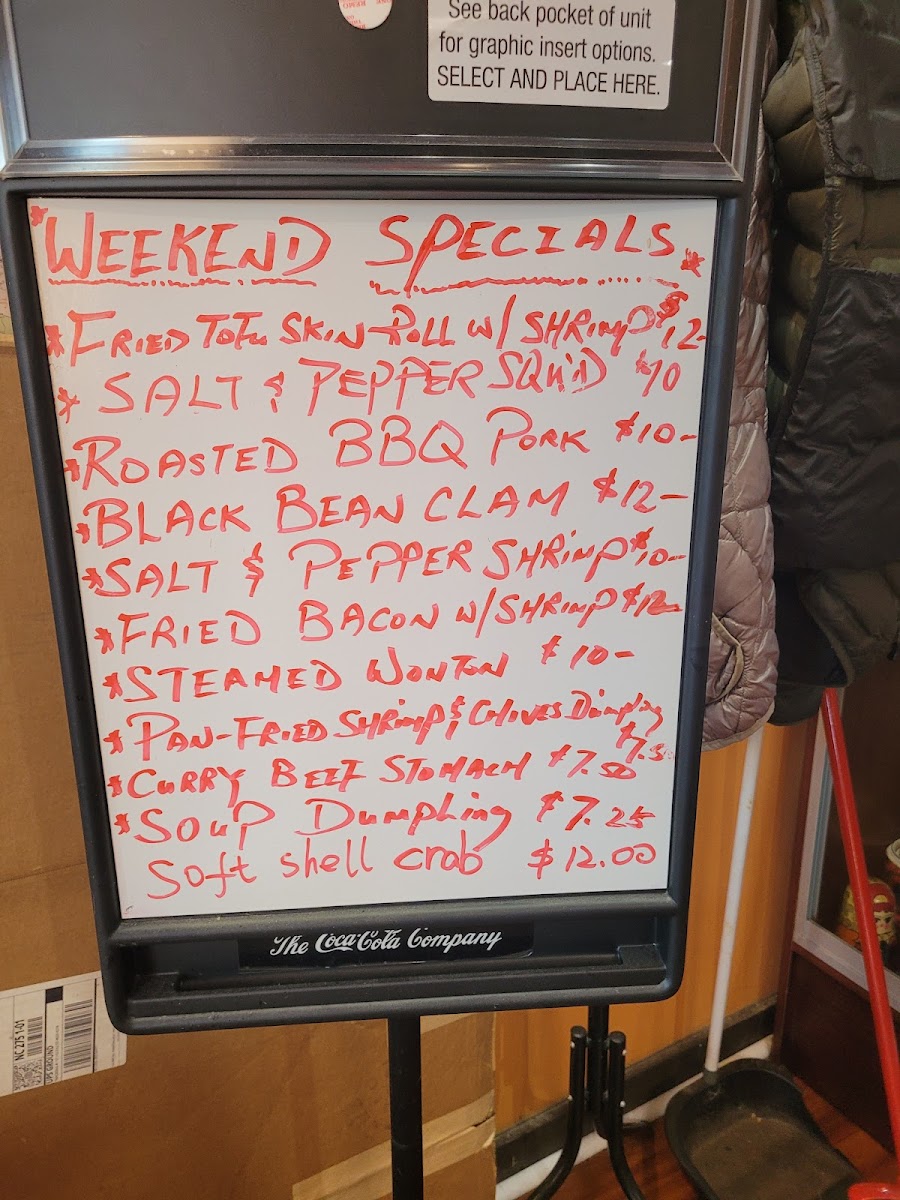 See back pocket of unit
for graphic insert options.
SELECT AND PLACE HERE.
*WEEKEND SPECIALS*
*FRIED TOFU SKIN ROLL W/ SHRIMP $12-
* SALT & PEPPER SQUID $10
*ROASTED BBQ PORK $10-
*BLACK BEAN CLAM $12-
*SALT & PEPPER SHRIMP $10-
*FRIED BACON W/SHRIMP $12
*STEAMED WONTON $10-
*PAN-FRIED SHRIMP & CHIVES Dumpling
$7.50
*CURRY BEEF STOMACH $7.50
*SOUP Dumpling $7.25
Soft shell crab $12.00
The Coca-Cola Company
NC 275 1-01
UPS GROUND